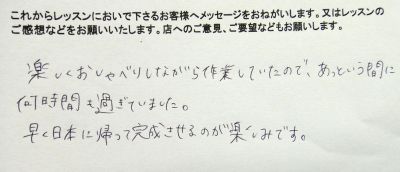 これからレッスンにおいで下さるお客様へメッセージをおねがいします。又はレッスンの
ご感想などをお願いいたします。店へのご意見、ご要望などもお願いします。
楽しくおしゃべりしながら作業していたので、あっという間に
何時間も過ぎていました。
早く日本に帰って完成させるのが楽しみです。